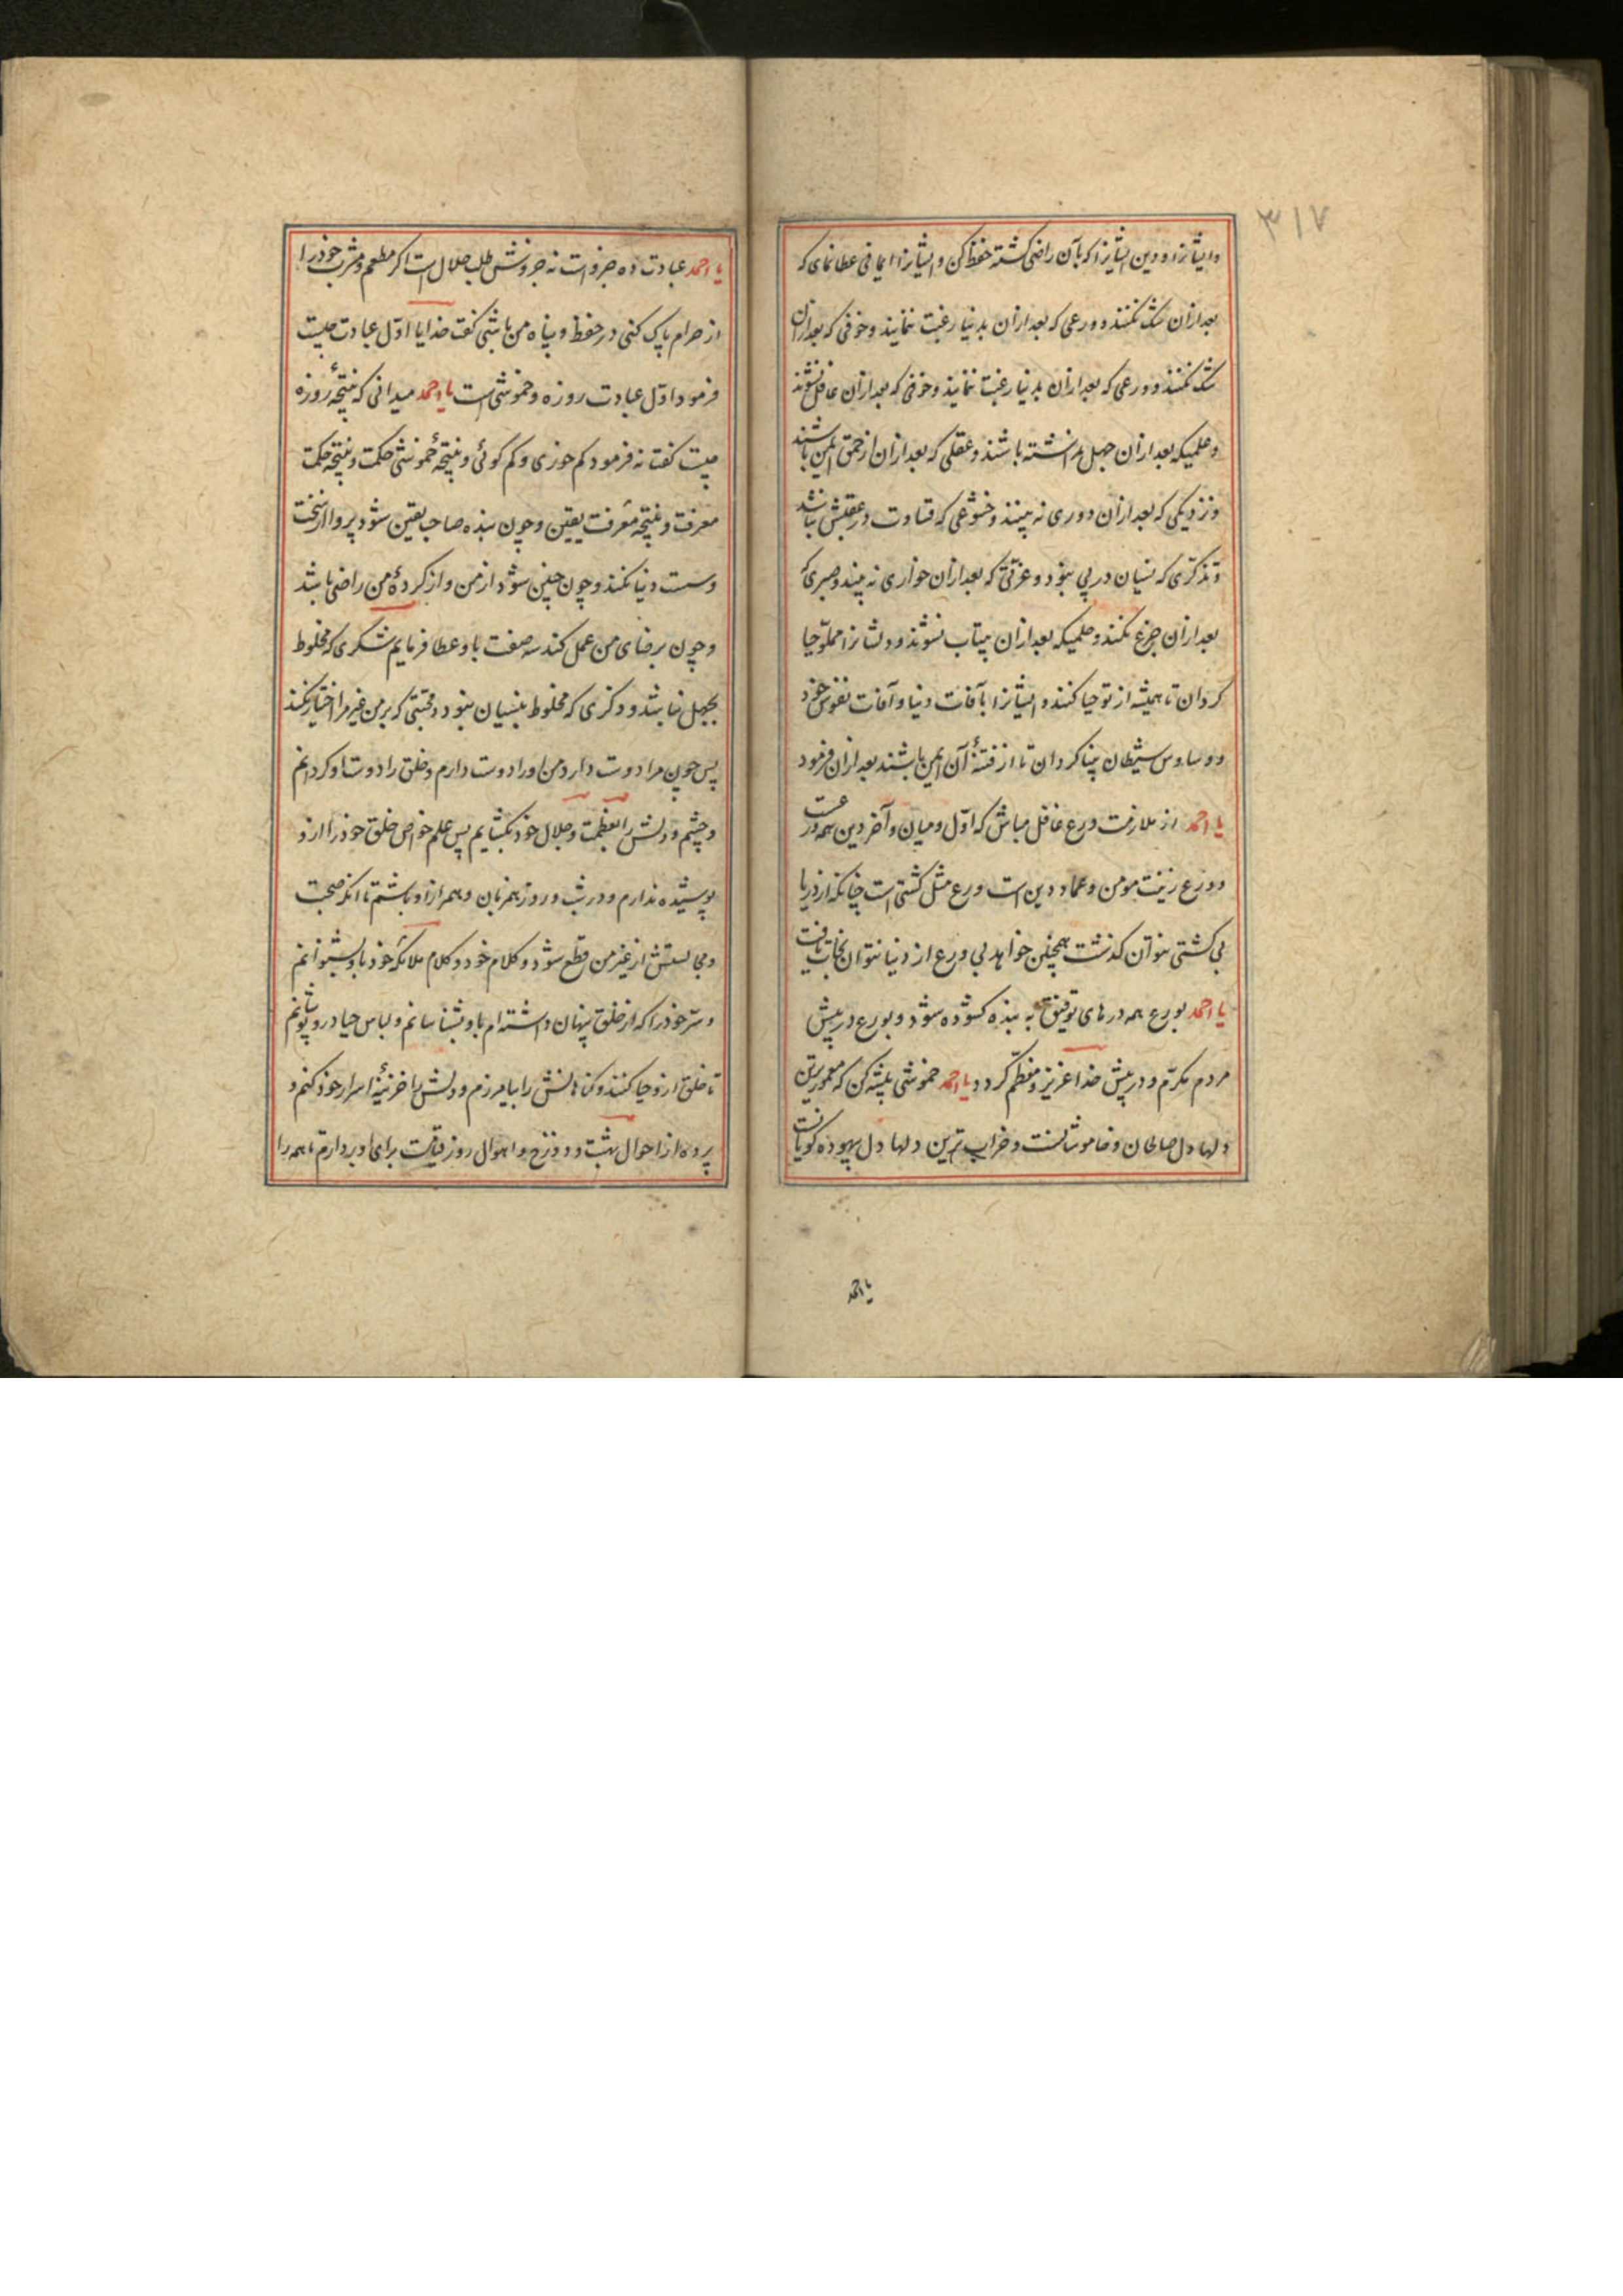 ۳۱۷
و ایشانرا و دین ایشانرا که بآن راضی کشته حفظ کن و ایشانرا ایمانی عطا نمای که
بعد ازان شک نکنند و ورعی که بعد ازان بدنیا رغبت ننمایند و خوفی که بعد ازان
شک نکنند و ورعی که بعد ازان بدنیا رغبت ننمایند و خوفی که بعد ازان غافل نشوند
و علمیکه بعد ازان جهل ندانسته باشند و عقلی که بعد ازان از حمق ایمن باشند
و نزدیکی که بعد ازان دوری نه بینند و خشوعی که قساوت در عقبش نباشد
و تذکری که نسیان در پی نبود و عزتی که بعد ازان خواری نه بینند و صبری که
بعد ازان جزع نکنند و حلمیکه بعد ازان بیتاب نشوند و دلشانرا مملو حیا
کردان تا همیشه از تو حیا کنند و ایشانرا بآفات دنیا و آفات نفوس خود
و وساوس شیطان بینا کردان تا از فتنهٔ آن ایمن باشند بعد ازان فرمود
یا احمد از ملازمت ورع غافل مباش که اول و میان و آخر دین همه ورعست
و ورع زینت مومن و عماد دین است ورع مثل کشتی است چنانکه از دریا
بی کشتی نتوان کذشت همچنین خواهد بی ورع از دنیا نتوان نجات یافت
یا احمد بورع همه درهای توفیق به بنده کشوده شود و بورع در پیش
مردم مکرم و در پیش خدا عزیز و معظم کردد یا احمد خموشی پیشه کن که معمورترین
دلها دل صالحان و خاموشانست و خراب ترین دلها دل بیهوده کویانست
یا احمد
یا احمد عبادت ده جزو است نه جزوش طلب حلال است اکر مطعم و مشرب خود را
از حرام پاک کنی در حفظ و پناه من باشی کفت خدایا اول عبادت چیست
فرمود اول عبادت روزه و خموشی است یا احمد میدانی که نتیجهٔ روزه
چیست کفتا نه فرمود کم خوری و کم کوئی و نتیجهٔ خموشی حکمت و نتیجه حکمت
معرفت و نتیجه معرفت یقین و چون بنده صاحب یقین شود پروا از سخت
وسست دنیا نکند و چون چنین شود از من و از کردهٔ من راضی باشد
و چون برضای من عمل کند سه صفت باو عطا فرمایم شکری که مخلوط
بجهل نباشد و ذکری که مخلوط بنسیان نبود و محبتی که بر من غیر مرا اختیار نکند
پس چون مرا دوست دارد من او را دوست دارم و خلق را دوست او کردانم
و چشم و دلش را بعظمت و جلال خود بکشایم پس علم خواص خلق خود را ازو
پوشیده ندارم و در شب و روز همزبان و همراز او باشم تا آنکه صحبت
و مجالستش از غیر من قطع شود و کلام خود و کلام ملائکه خود باو بشنوانم
و سر خود را که از خلق پنهان داشته ام باو بشناسانم و لباس حیا درو پوشانم
تا خلق ازو حیا کنند و کناهانش را بیامرزم و دلش را خزینهٔ اسرار خود کنم و
پرده از احوال بهشت و دوزخ و اهوال روز قیامت برای او بردارم تا همه را